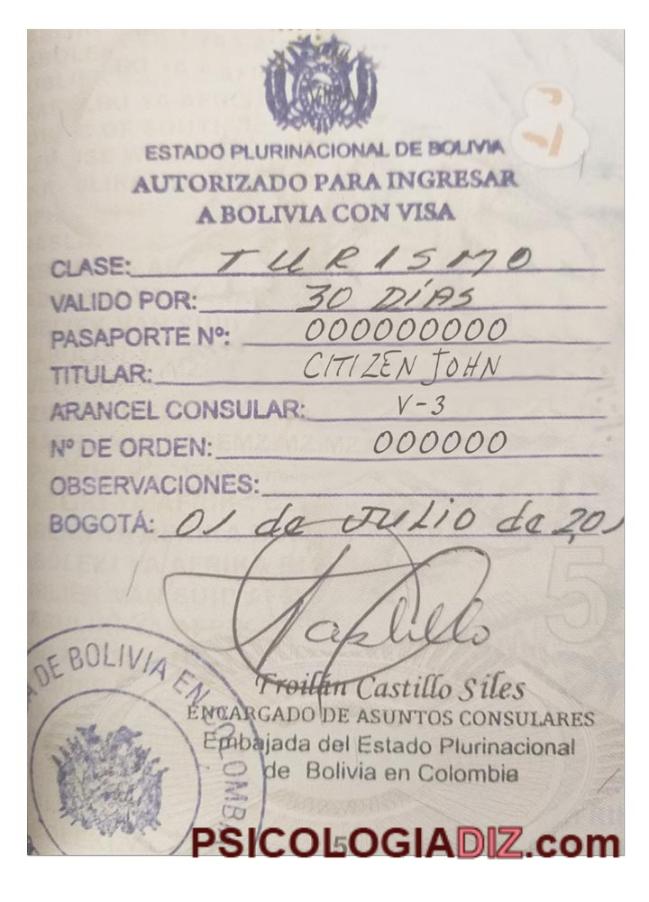 ESTADO PLURINACIONAL DE BOLIVIA
AUTORIZADO PARA INGRESAR
A BOLIVIA CON VISA
CLASE: TURISMO
VALIDO POR: 30 DÍAS
PASAPORTE Nº: 000000000
TITULAR: CITIZEN JOHN
ARANCEL CONSULAR: V-3
Nº DE ORDEN: 000000
OBSERVACIONES:
BOGOTÁ: 01 de JULIO de 201
Castillo
Troilán Castillo Siles
ENCARGADO DE ASUNTOS CONSULARES
Embajada del Estado Plurinacional
de Bolivia en Colombia
DE BOLIVIA EN COLOMBIA
5
PSICOLOGIADIZ.com